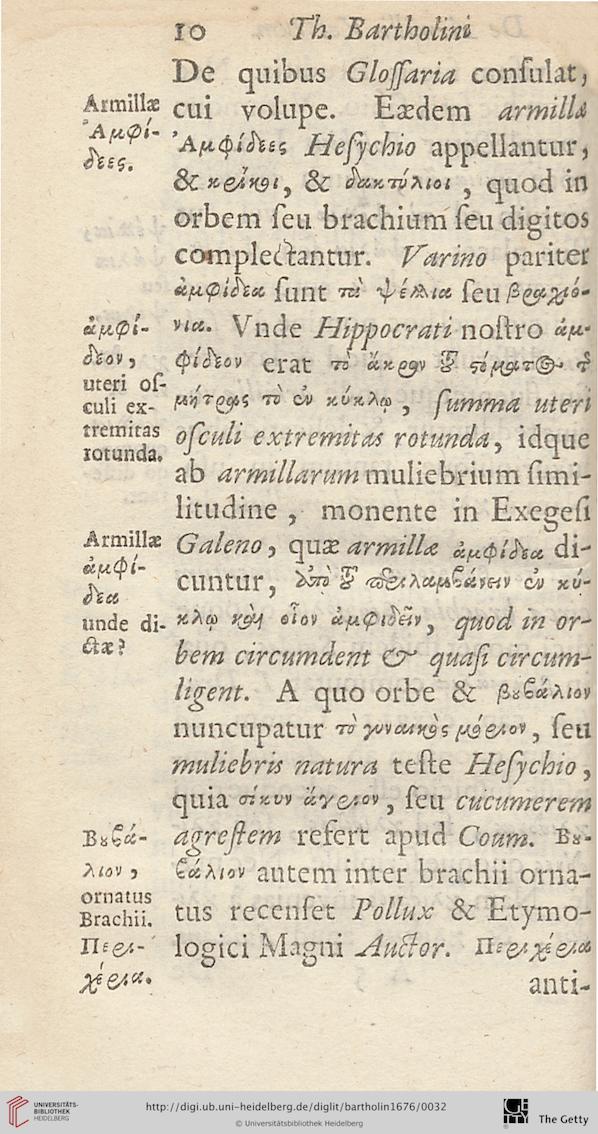 10 Th. Bartholini
De quibus Gloſſaria conſulat,
cui volupe. Eædem armillæ
Ἀμφίδεες Heſychio appellantur,
& κρίκοι, & δακτύλιοι, quod in
orbem ſeu brachium ſeu digitos
complectantur. Varino pariter
ἀμφίδεα ſunt τὰ ψέλλια ſeu βραχιό-
νια. Vnde Hippocrati noſtro ἀμ-
φίδεον erat τὸ ἄκρον τοῦ στόματος τῆς
μήτρας τὸ ἐν κύκλῳ, ſumma uteri
oſculi extremitas rotunda, idque
ab armillarum muliebrium ſimi-
litudine, monente in Exegeſi
Galeno, quæ armillæ ἀμφίδεα di-
cuntur, ἀπὸ τοῦ περιλαμβάνειν ἐν κύ-
κλῳ καὶ οἷον ἀμφιδεῖν, quod in or-
bem circumdent & quaſi circum-
ligent. A quo orbe & βουβάλιον
nuncupatur τὸ γυναικὸς μόριον, ſeu
muliebris natura teſte Heſychio,
quia σίκυν ἄγριον, ſeu cucumerem
agreſtem refert apud Coum. Βου-
βάλιον autem inter brachii orna-
tus recenſet Pollux & Etymo-
logici Magni Auctor. Περιχέρια
anti-
Armillæ
Ἀμφί-
δεες.
ἀμφί-
δεον,
uteri oſ-
culi ex-
tremitas
rotunda.
Armillæ
ἀμφί-
δεα
unde di-
ctæ?
Βουβά-
λιον,
ornatus
Brachii.
Περι-
χέρια.
UNIVERSITÄTS-
BIBLIOTHEK
HEIDELBERG
http://digi.ub.uni-heidelberg.de/diglit/bartholin1676/0032
© Universitätsbibliothek Heidelberg
The Getty